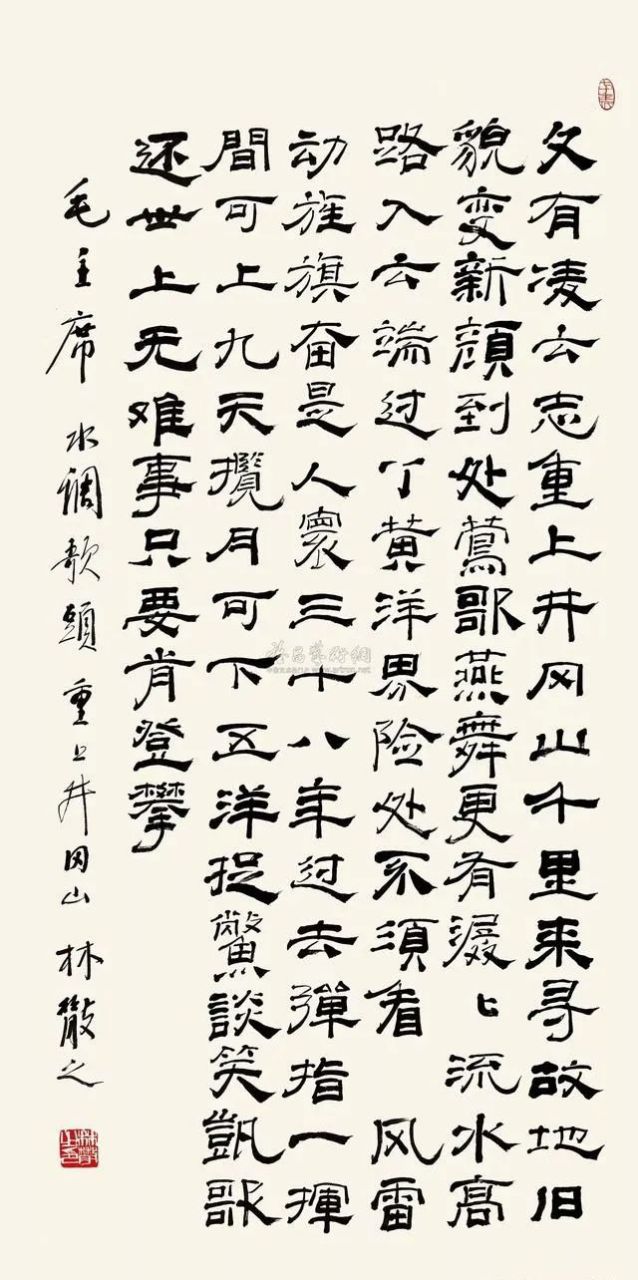 久有凌云志重上井冈山千里来寻故地旧
貌变新顔到处鶯歌燕舞更有潺〻流水高
路入云端过了黄洋界险处不須看 风雷
动旌旗奋是人寰三十八年过去彈指一揮
間可上九天攬月可下五洋捉鱉談笑凱歌
还世上无难事只要肯登攀
毛主席 水调歌頭 重上井冈山 林散之